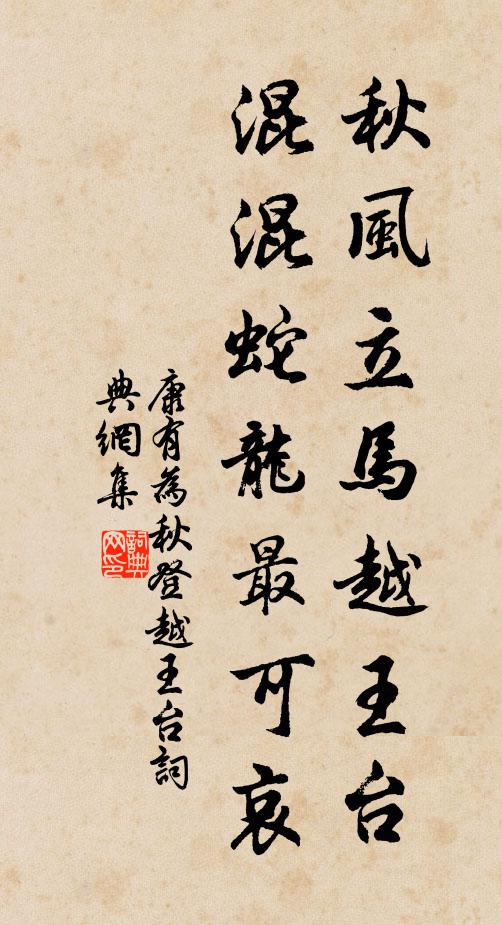 秋風立馬越王台
混混蛇龍最可哀
康有為秋登越王台詞
典網集
詞典
网印